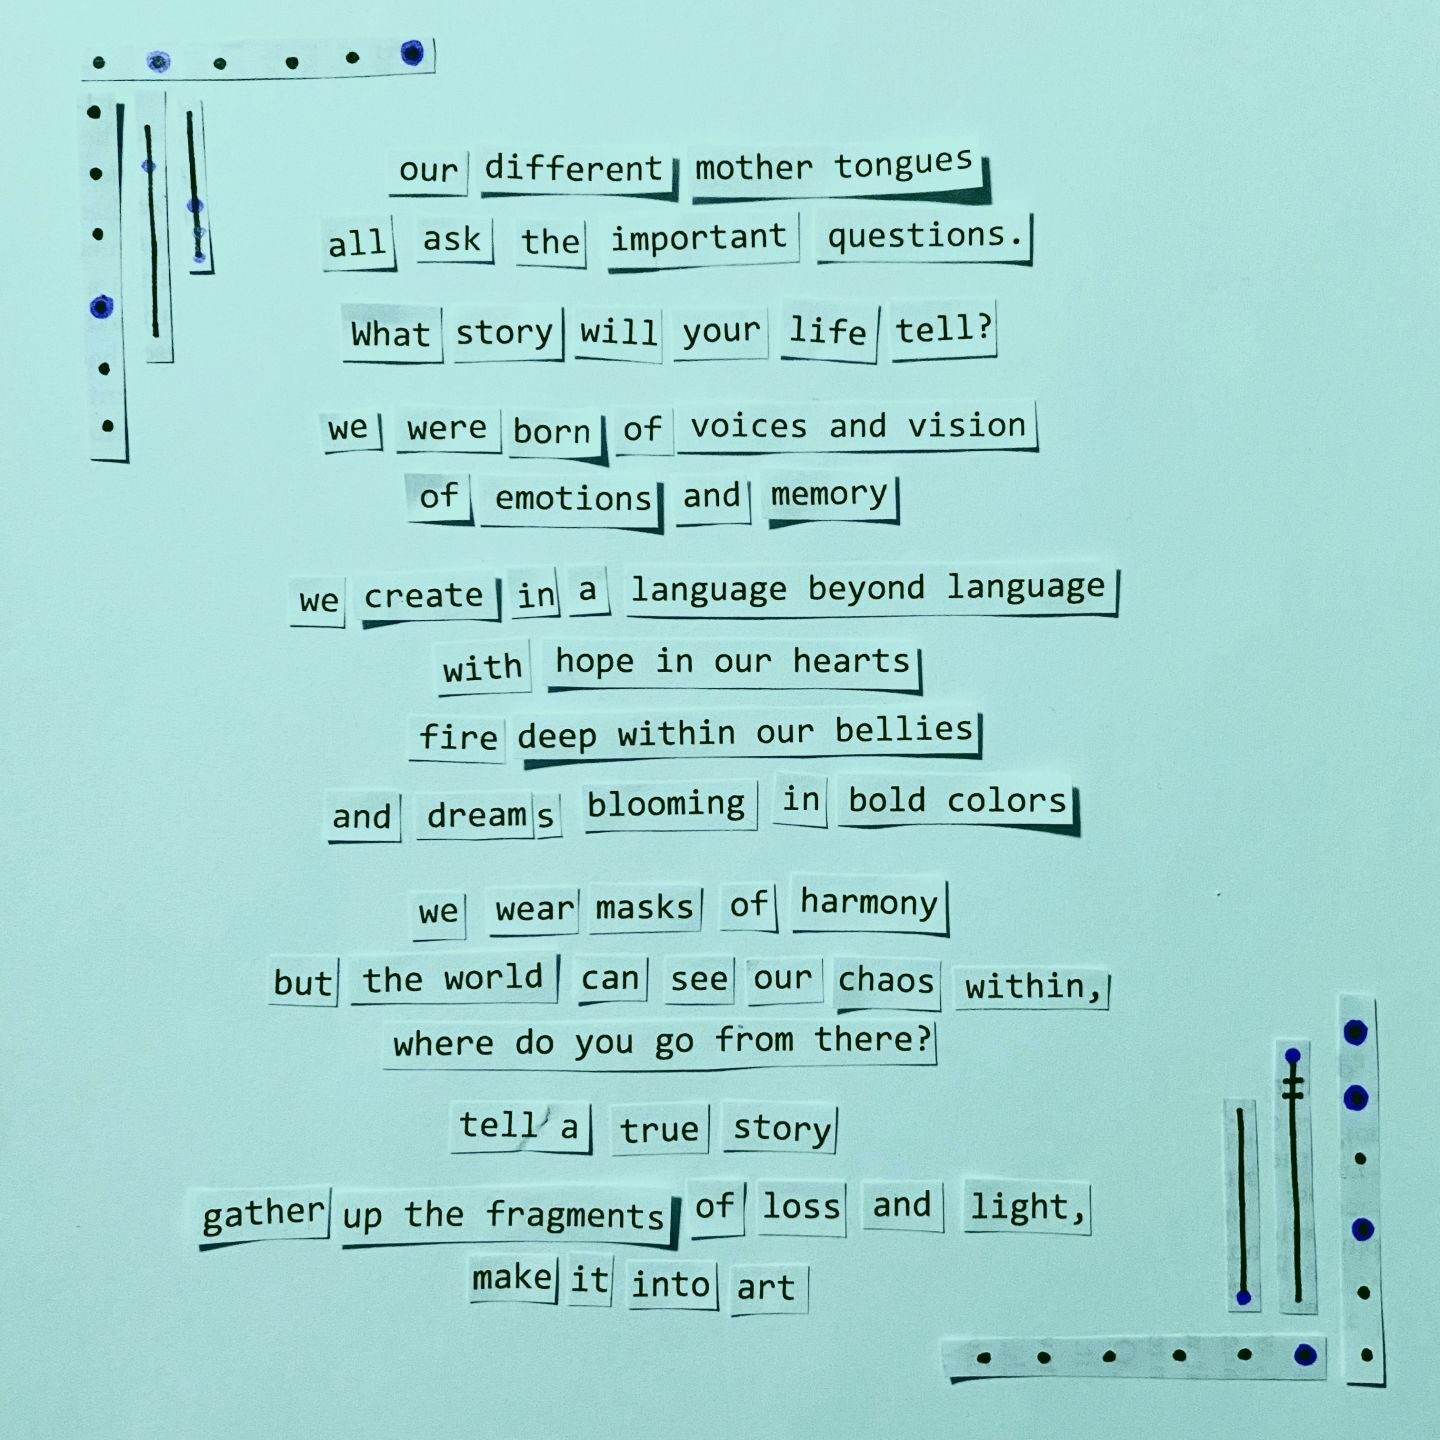 our different mother tongues
all ask the important questions.
What story will your life tell?
we were born of voices and vision
of emotions and memory
we create in a language beyond language
with hope in our hearts
fire deep within our bellies
and dreams blooming in bold colors
we wear masks of harmony
but the world can see our chaos within,
where do you go from there?
tell a true story
gather up the fragments of loss and light,
make it into art